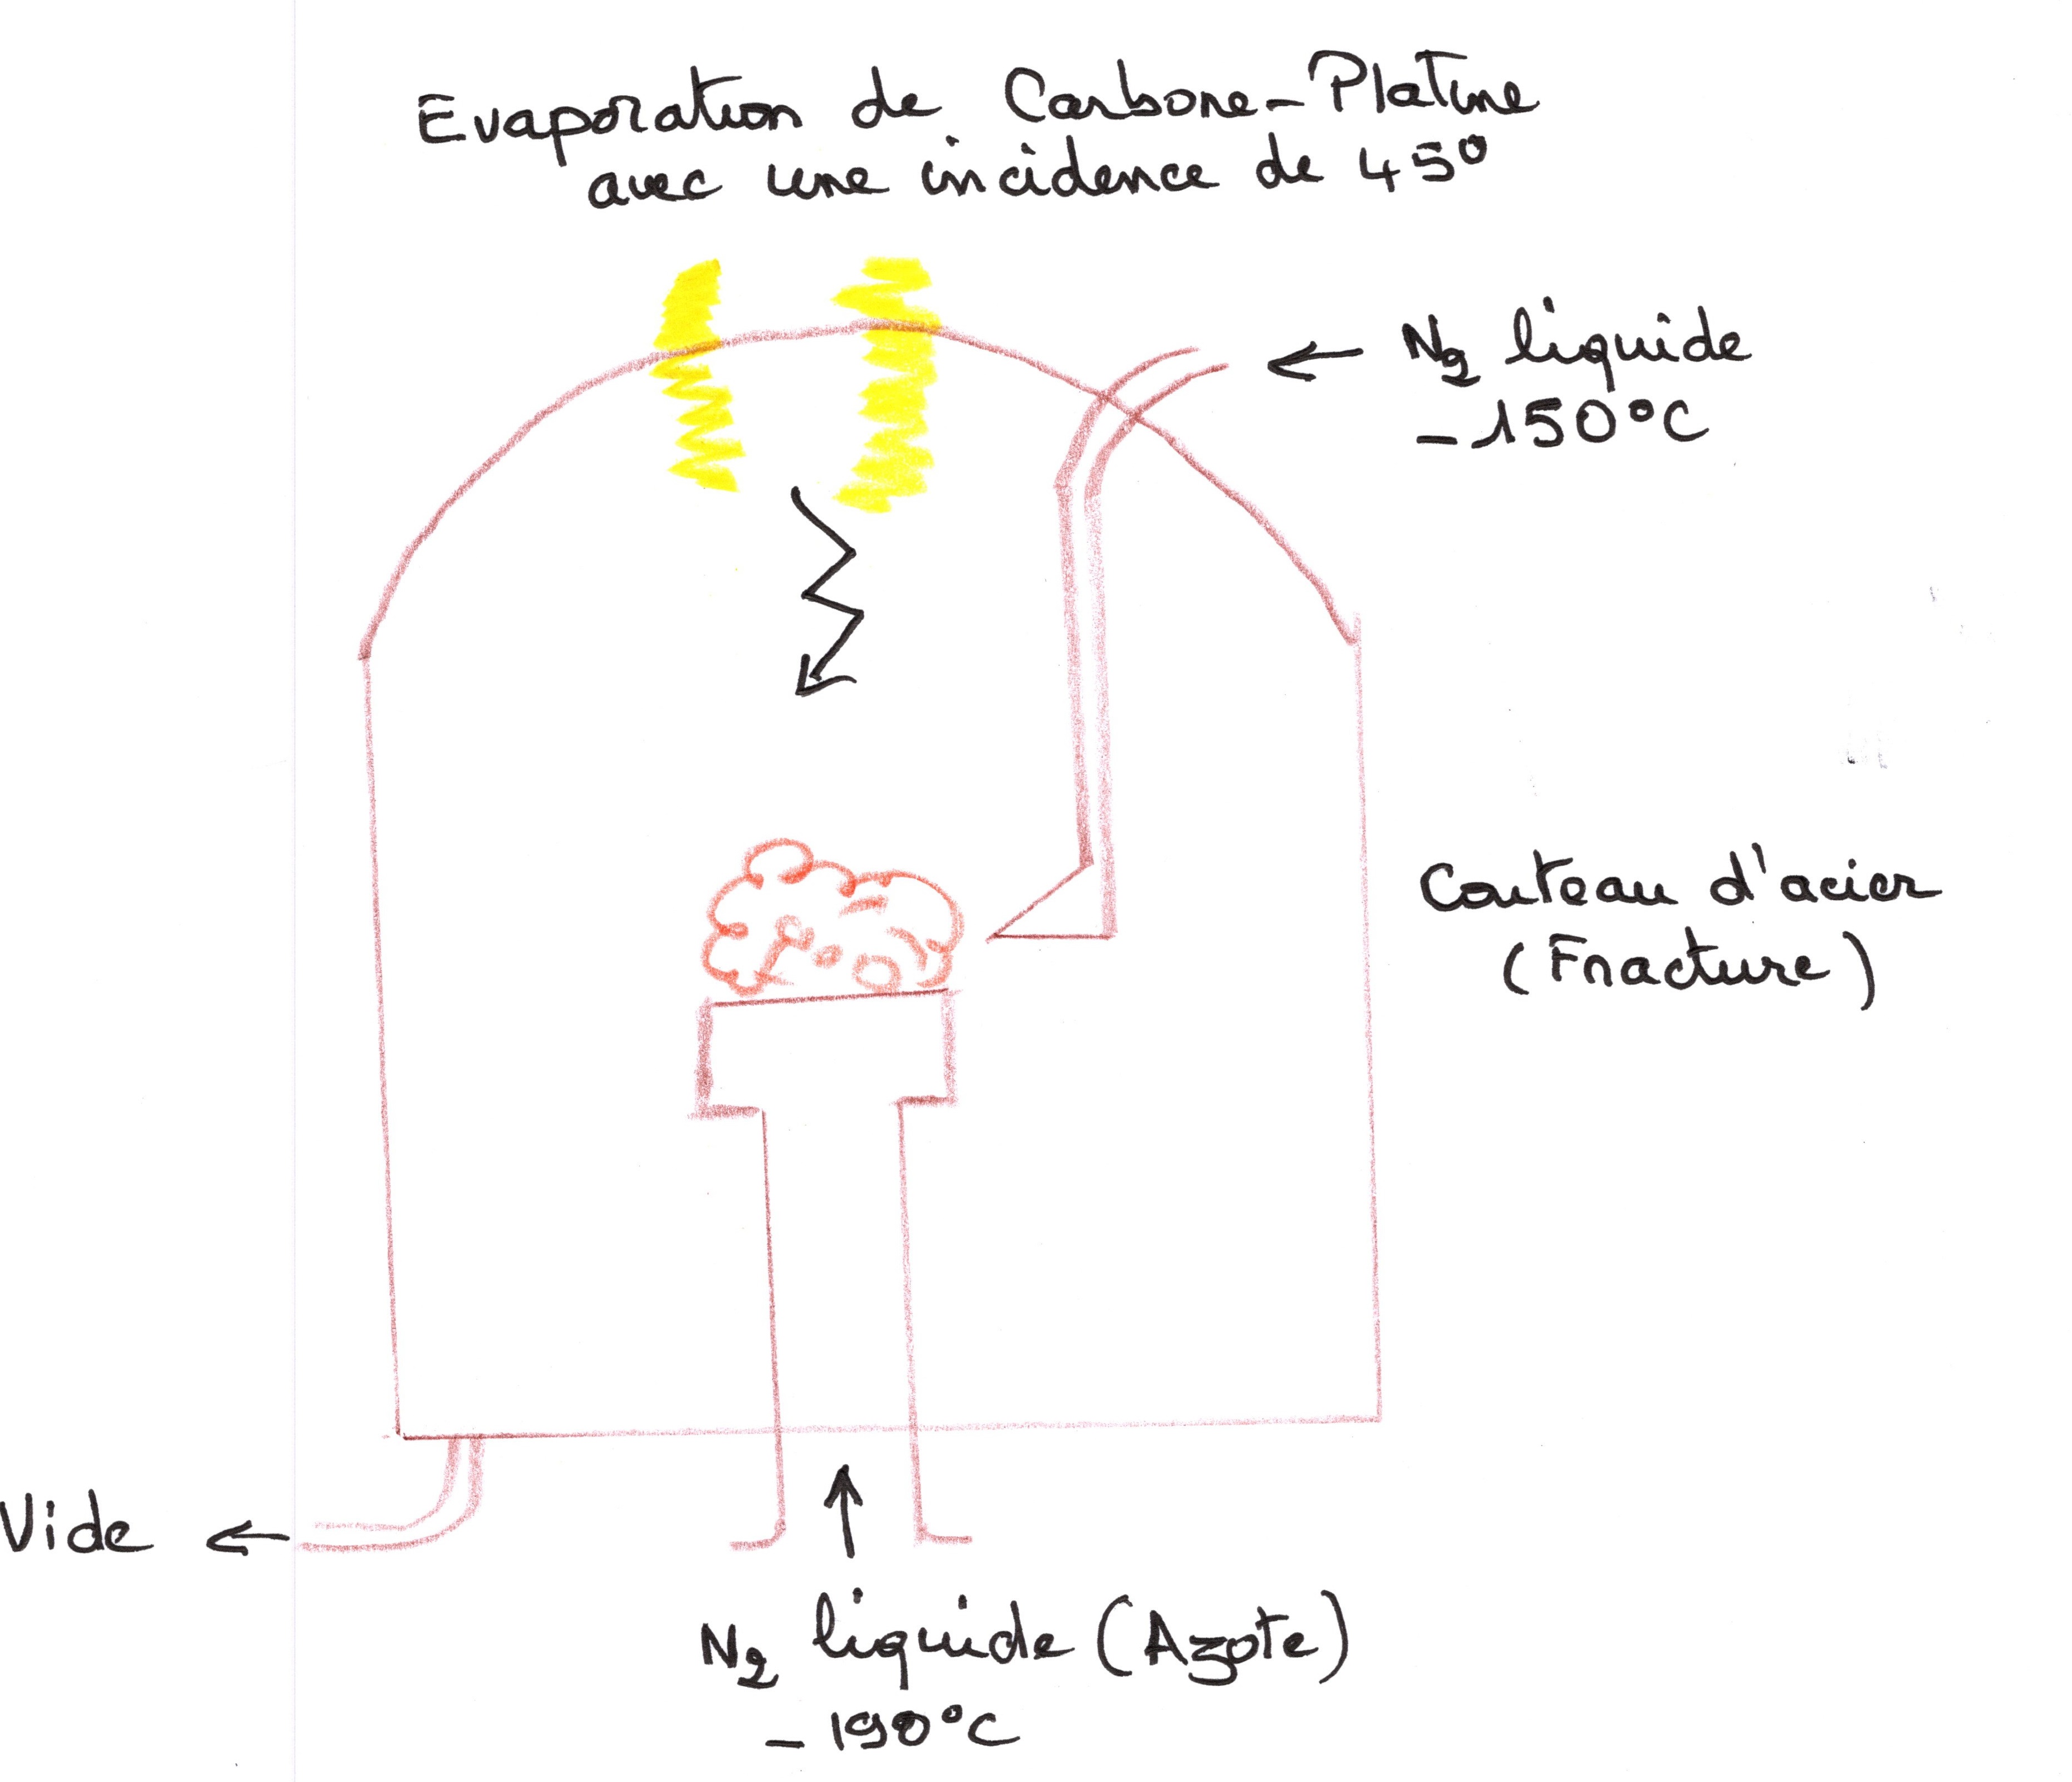 Evaporation de Carbone-Platine
avec une incidence de 45°
N2 liquide
-150°C
Couteau d'acier
(Fracture)
Vide
N2 liquide (Azote)
-190°C